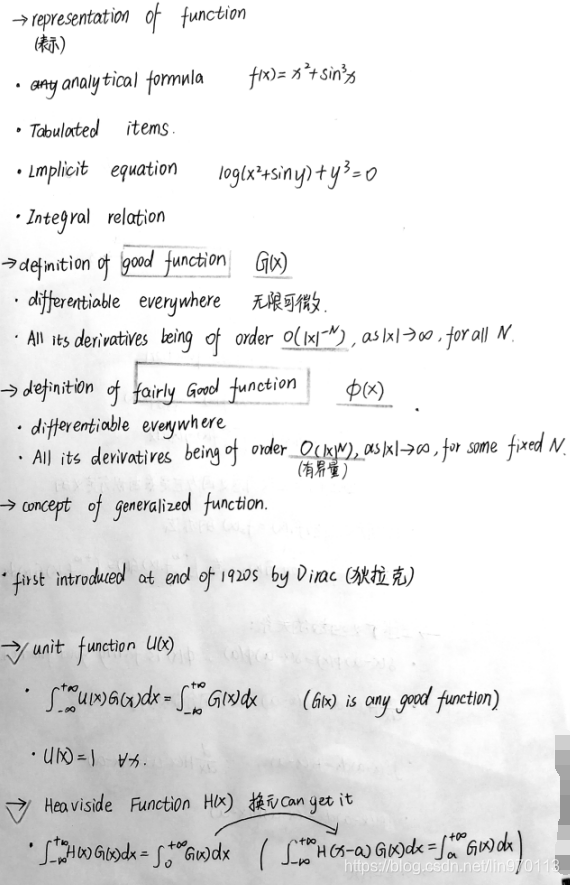 → representation of function
(表示)
· any analytical formula f(x)= x²+sin³x
· Tabulated items.
· Implicit equation log(x²+siny)+y³=0
· Integral relation
→ definition of good function G(x)
· differentiable everywhere 无限可微.
· All its derivatives being of order O(|x|⁻ᴺ), as|x|→∞, for all N.
→ definition of fairly Good function ϕ(x)
· differentiable everywhere
· All its derivatives being of order O(|x|ᴺ), as|x|→∞, for some fixed N.
(有界量)
→ concept of generalized function.
· first introduced at end of 1920s by Dirac (狄拉克)
→ unit function U(x)
· ∫₋∞⁺∞ U(x)G(x)dx = ∫₋∞⁺∞ G(x)dx (G(x) is any good function)
· U(x)=1 ∀x.
→ Heaviside Function H(x) 换元 can get it
· ∫₋∞⁺∞ H(x)G(x)dx = ∫₀⁺∞ G(x)dx ( ∫₋∞⁺∞ H(x-a)G(x)dx = ∫ₐ⁺∞ G(x)dx )
https://blog.csdn.net/lin970113